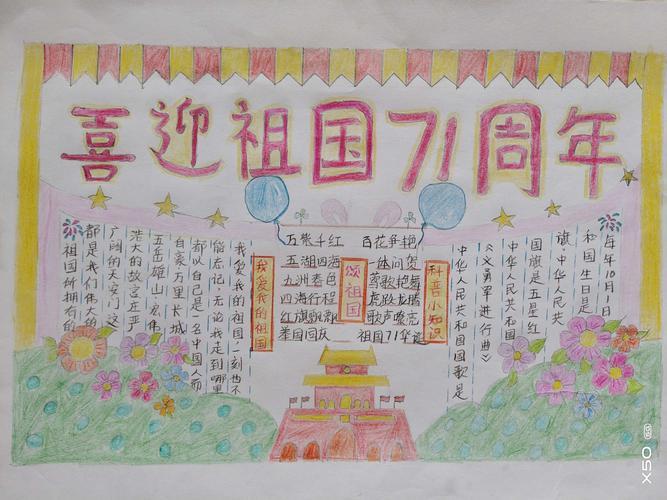 喜迎祖国71周年
我爱我的祖国
我爱我的祖国,一刻也不
能忘记,无论我走到哪里
都以自己是一名中国人而
自豪万里长城
五岳雄山,宏伟
浩大的故宫庄严
广阔的天安门这
都是我们伟大的
祖国所拥有的
颂祖国
万紫千红 百花争艳
五湖四海 一体问贺
九洲春色 莺歌艳舞
四海行程 虎跃龙腾
红旗飘飘 歌声嘹亮
举国同庆 祖国71华诞
科普小知识
中华人民共和国国歌是
《义勇军进行曲》
中华人民共和国
国旗是五星红
旗·中华人民共
和国生日是
每年10月1日
X50